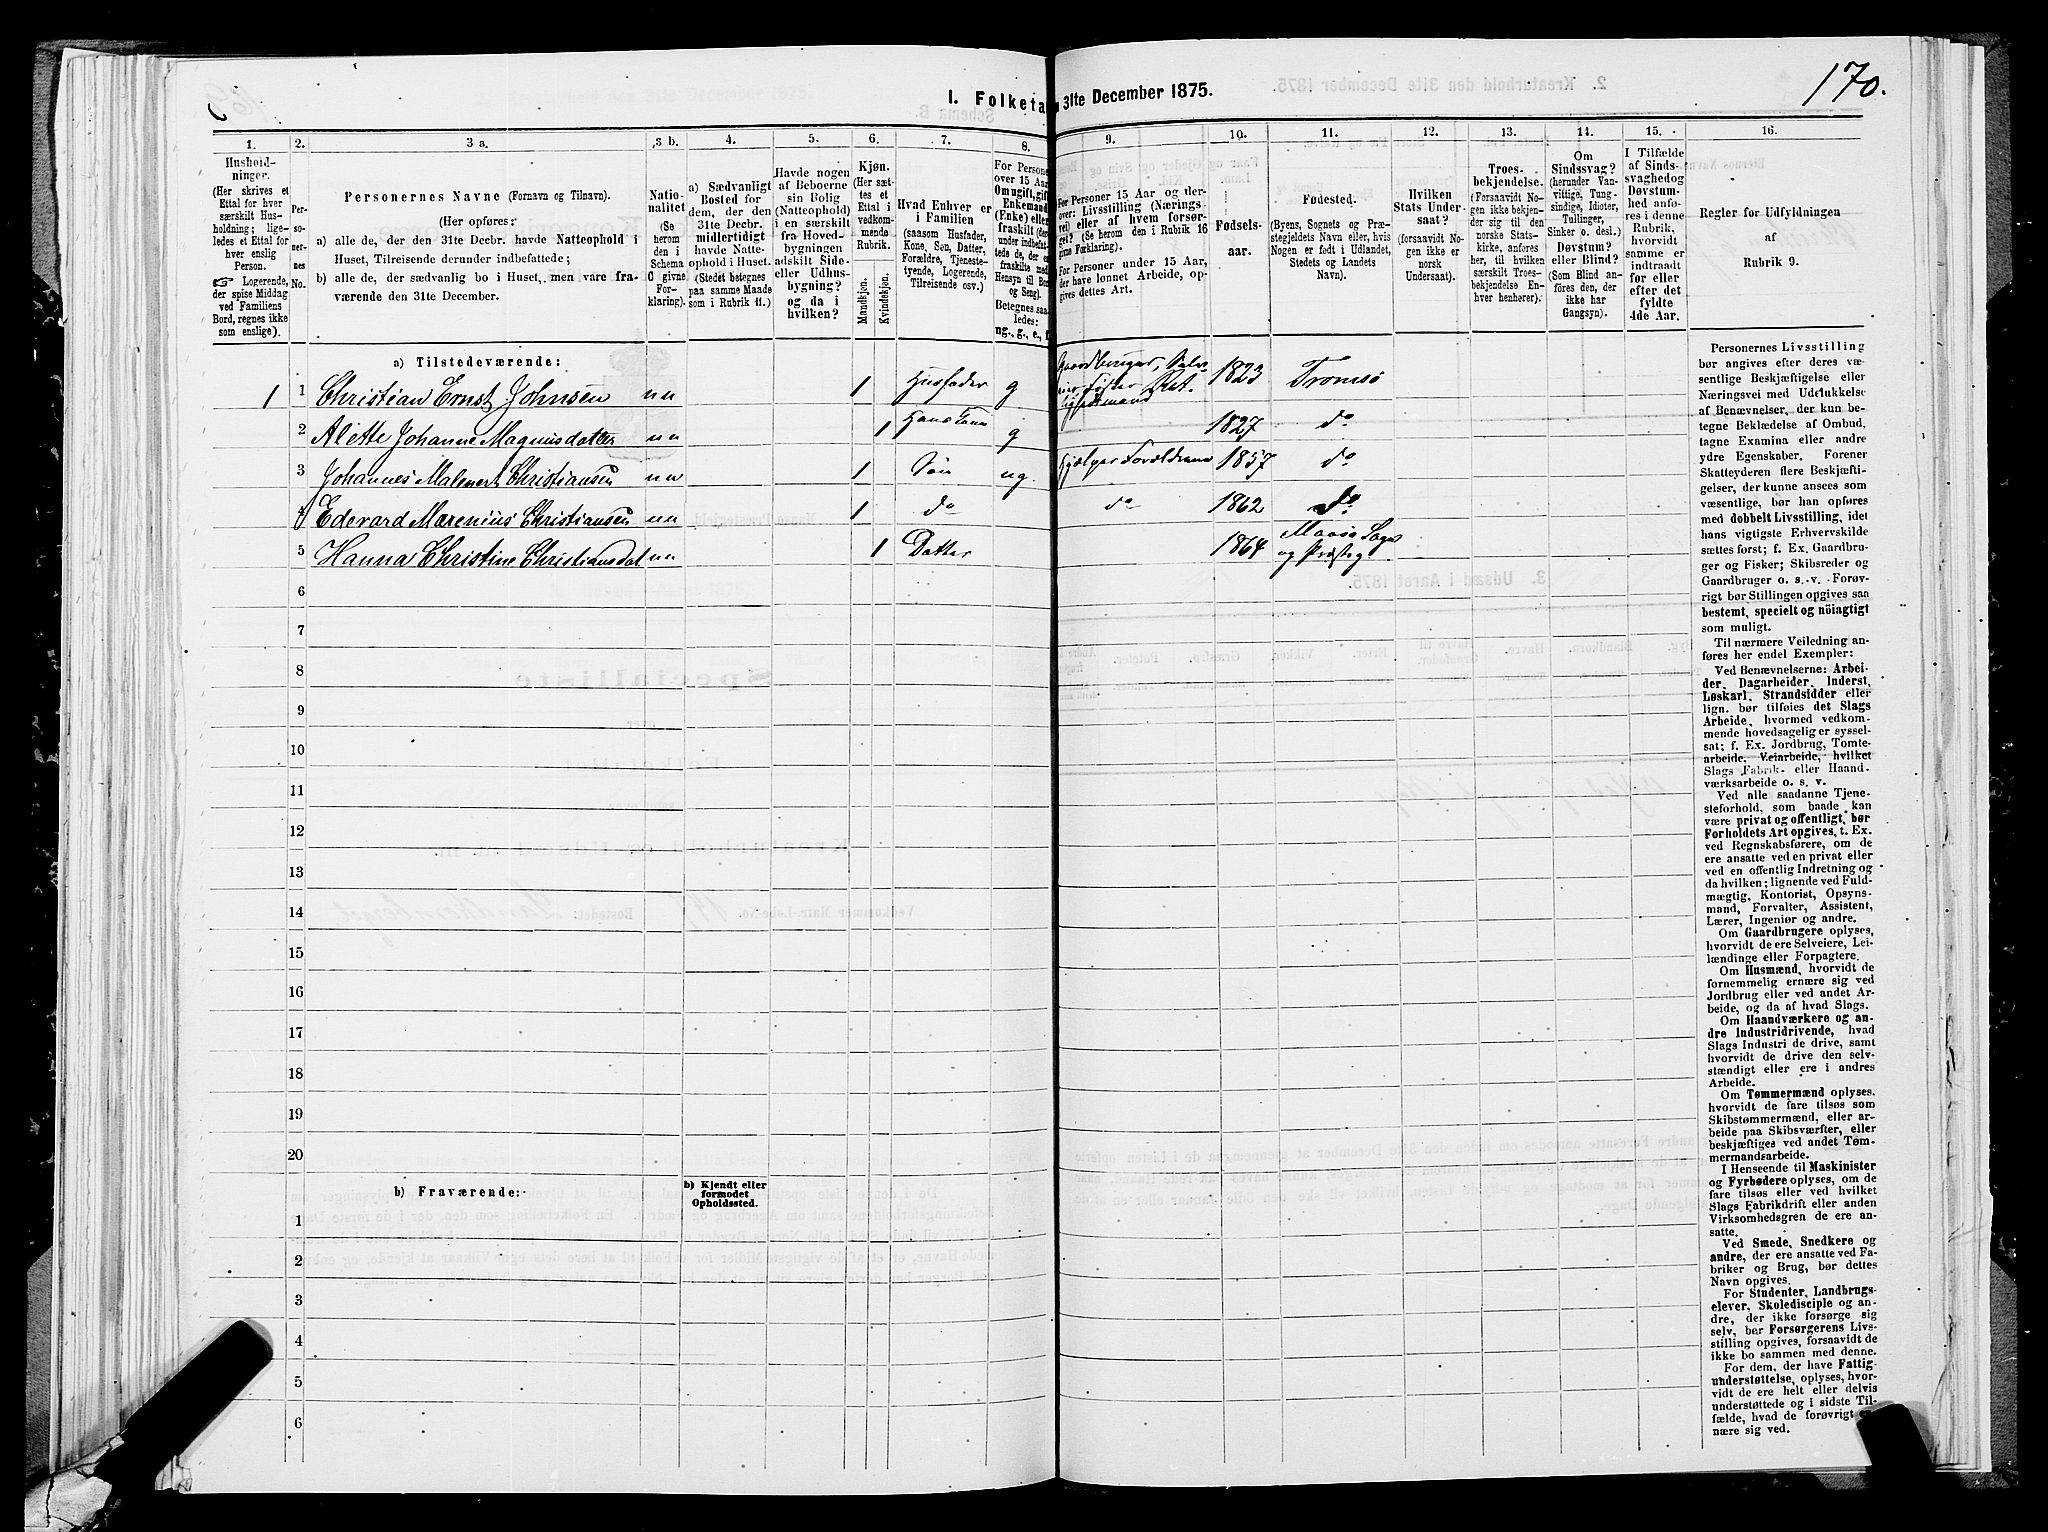 170.
1. Folketa
31te December 1875.
1.
2.
3 a.
3 b.
4.
5.
6.
7.
8.
9.
10.
11.
12.
13.
14.
15.
16.
Hushold-
ninger.
(Her skrives et
Ettal for hver
særskilt Hus-
holdning; lige-
ledes et Ettal for
hver enslig
Person.
☞ Logerende,
der spise Middag
ved Familiens
Bord, regnes ikke
som enslige).
Per-
so-
ner-
nes
No.
Personernes Navne (Fornavn og Tilnavn).
(Her opføres:
a) alle de, der den 31te Decbr. havde Natteophold i
Huset, Tilreisende derunder indbefattede;
b) alle de, der sædvanlig bo i Huset, men vare fra-
værende den 31te December.
Natio-
nalitet
(Se
herom
den i
Schema
C givne
For-
klaring).
a) Sædvanligt
Bosted for
dem, der den
31te Decbr.
midlertidigt
havde Natte-
ophold i Huset.
(Stedet betegnes
paa samme Maade
som i Rubrik 11.)
Havde nogen
af Beboerne
sin Bolig
(Natteophold)
i en særskilt
fra Hoved-
bygningen
adskilt Side-
eller Udhus-
bygning?
og da i
hvilken?
Kjøn.
(Her sæt-
tes et
Ettal i
vedkom-
mende
Rubrik.
Mandkjøn.
Kvindekjøn.
Hvad Enhver er
i Familien
(saasom Husfader,
Kone, Søn, Datter,
Forældre, Tjeneste-
tyende, Logerende,
Tilreisende osv.)
For Persone
over 15 Aar
Om ugift, gift
Enkemand
(Enke) eller
fraskilt (der
under indbefat-
tede de, der er
fraskilte med
Hensyn til Bor
og Seng).
Betegnes saa
ledes:
ug., g., e., f.
For Personer 15 Aar og der-
over: Livsstilling (Nærings-
vei) eller af hvem forsør-
get? (Se herom den i Rubrik 16
givne Forklaring).
For Personer under 15 Aar,
der have lønnet Arbeide, op-
gives dettes Art.
Fødsels-
aar.
Fødested.
(Byens, Sognets og Præ-
stegjeldets Navn eller, hvis
Nogen er født i Udlandet,
Stedets og Landets
Navn).
Hvilken
Stats Under-
saat?
(forsaavidt No-
gen ikke er
norsk
Undersaat).
Troes-
bekjendelse.
(Forsaavidt No-
gen ikke bekjen-
der sig til den
norske Stats-
kirke, anføres
her, til hvilken
særskilt Troes-
bekjendelse En-
hver henhører).
Om
Sindssvag?
(herunder Van-
vittige, Tung-
sindige, Idioter,
Tullinger,
Sinker o. desl.)
Døvstum?
eller Blind?
(Som Blind an-
føres den, der
ikke har
Gangsyn).
I Tilfælde
af Sinds-
svaghed og
Døvstum-
hed anfø-
res i denne
Rubrik,
hvorvidt
samme er
indtraadt
før eller
efter det
fyldte
4de Aar.
Regler for Udfyldningen
af
Rubrik 9.
a) Tilstedeværende:
1 1 Christian Ernst Johnsen nn 1 Husfader g Gaardbruger, 1823 Tromsø
2 Alette Johanne Magnusdatter nn 1 Hans Kone g 1827 do
3 Johannes Malenert Christiansen nn 1 Søn ug. Hjælper Forældrene 1857 do
4 Edevard Marenius Christiansen nn 1 do do 1862 do
5 Hanna Christine Christiansdat nn 1 Datter 1864 Maasø Sogn
og Præsteg
6
7
8
9
10
11
12
13
14
15
16
17
18
19
20
b) Fraværende:
b) Kjendt eller
formodet
Opholdssted.
1
2
3
4
5
6
Personernes Livsstilling
bør angives efter deres væ-
sentlige Beskjæftigelse eller
Næringsvei med Udelukkelse
af Benævnelser, der kun be-
tegne Beklædelse af Ombud,
tagne Examina eller andre
ydre Egenskaber. Forener
Skatteyderen flere Beskjæfti-
gelser, der kunne ansees som
væsentlige, bør han opføres
med dobbelt Livsstilling, idet
hans vigtigste Erhvervskilde
sættes først; f. Ex. Gaardbru-
ger og Fisker; Skibsreder og
Gaardbruger o. s. v. Forøv-
rigt bør Stillingen opgives saa
bestemt, specielt og nöiagtigt
som muligt.
Til nærmere Veiledning an-
føres her endel Exempler:
Ved Benævnelserne: Arbei-
der, Dagarbeider, Inderst,
Løskarl, Strandsidder eller
lign. bør tilføies det Slags
Arbeide, hvormed vedkom-
mende hovedsagelig er syssel-
sat; f. Ex. Jordbrug, Tomte-
arbeide, Veiarbeide, hvilket
Slags Fabrik- eller Haand-
værksarbeide o. s. v.
Ved alle saadanne Tjene-
steforhold, som baade kan
være privat og offentligt, bør
Forholdets Art opgives, t. Ex.
ved Regnskabsførere, om de
ere ansatte ved en privat eller
ved en offentlig Indretning og
da hvilken; lignende ved Fuld-
mægtig, Kontorist, Opsyns-
mand, Forvalter, Assistent,
Lærer, Ingeniør og andre.
Om Gaardbrugere oplyses,
hvorvidt de ere Selveiere, Lei-
lændinge eller Forpagtere.
Om Husmænd, hvorvidt de
fornemmelig ernære sig ved
Jordbrug eller ved andet Ar-
beide, og da af hvad Slags.
Om Haandværkere og an-
dre Industridrivende, hvad
Slags Industri de drive, samt
hvorvidt de drive den selv-
stændigt eller ere i andres
Arbeide.
Om Tømmermænd oplyses,
hvorvidt de fare tilsøs som
Skibstømmermænd, eller ar-
beide paa Skibsværfter, eller
beskjæftiges ved andet Tøm-
mermandsarbeide.
I Henseende til Maskinister
og Fyrbødere oplyses, om de
fare tilsøs eller ved hvilket
Slags Fabrikdrift eller anden
Virksomhedsgren de ere an-
satte.
Ved Smede, Snedkere og
andre, der ere ansatte ved Fa-
briker og Brug, bør dettes
Navn opgives.
For Studenter, Landbrugs-
elever, Skoledisciple og an-
dre, der ikke forsørge sig
selv, bør Forsørgerens Livs-
stilling opgives, forsaavidt de
ikke bo sammen med denne.
For dem, der have Fattig-
understøttelse, oplyses, hvor-
vidt de ere helt eller delvis
understøttede og i sidste Til-
fælde, hvad de forøvrigt er-
nære sig ved.